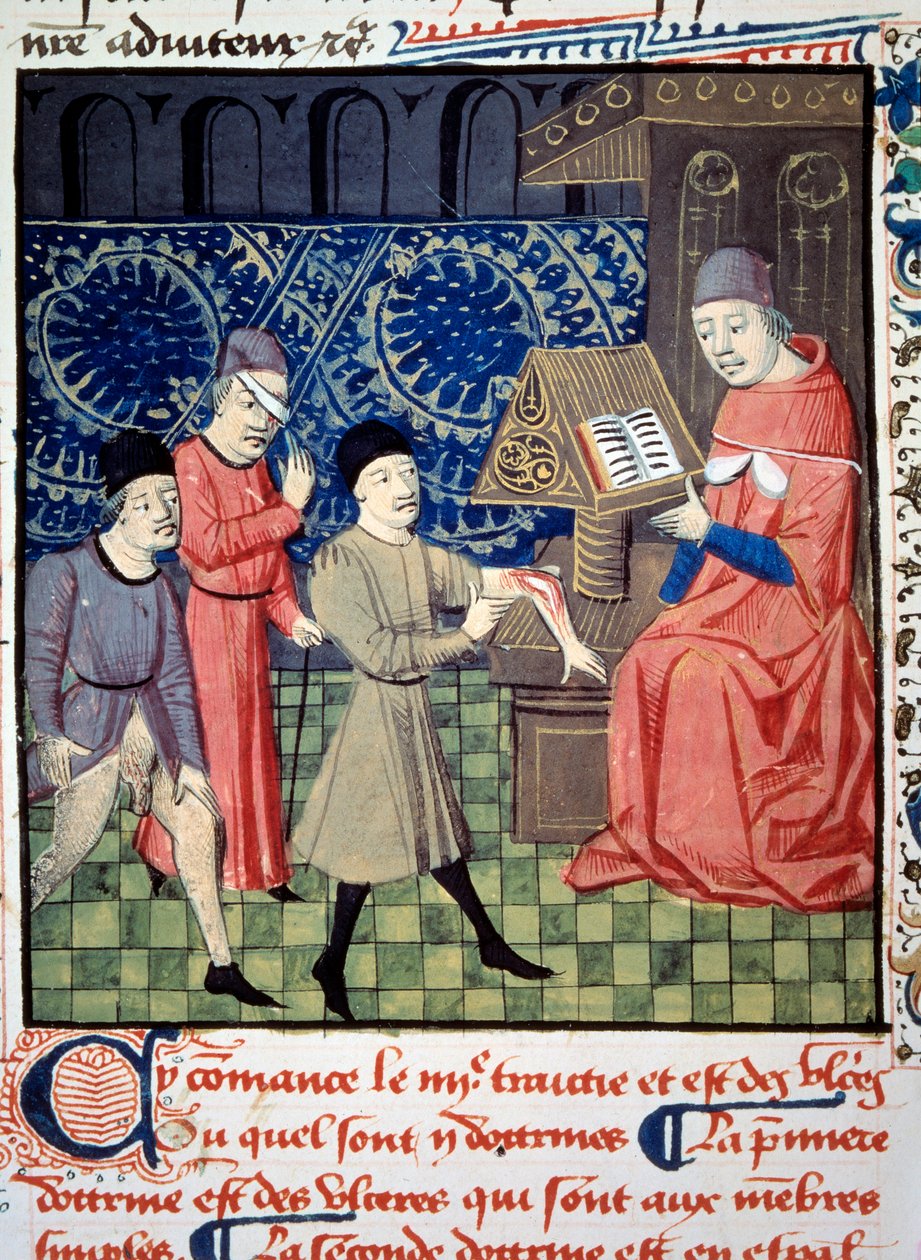 nre adiuteur rc.
Cy cõmance le iiijᵉ. traictie et est des vlceres
Ou quel sont ij doctrines La p̃miere
doctrine est des vlceres qui sont aux mẽbres
simples. La seconde doctrine est en